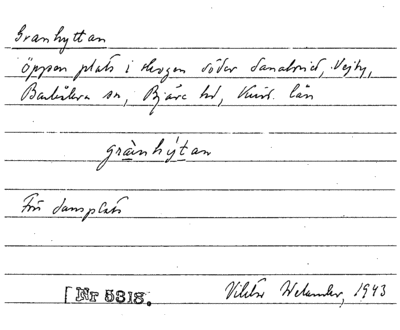 Granhyttan
öppen plats i skogen söder Vejby,
Båstads sn, Bjäre hd, Krist. län
grànhýtan
Förr dansplats
[Nr 5318.
Viktor Welander, 1943